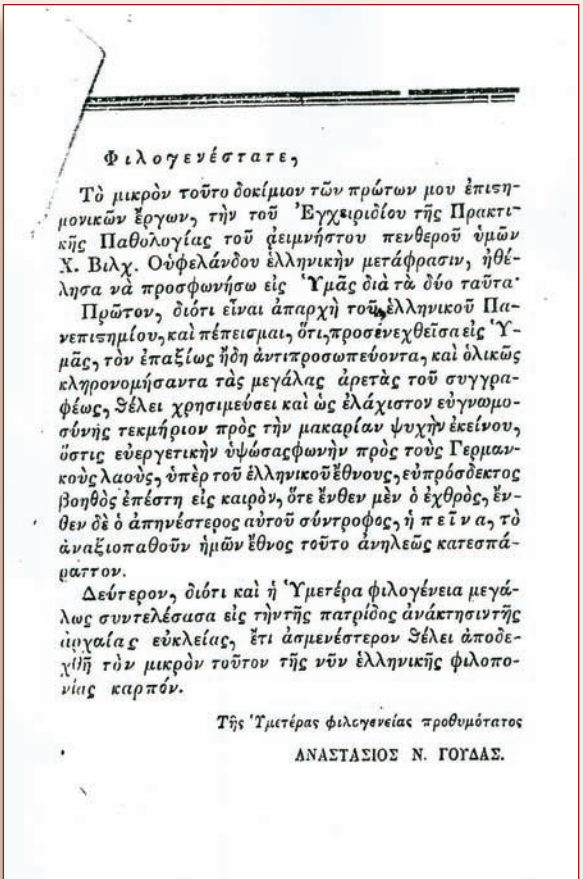 Φιλογενέστατε,
Τὸ μικρὸν τοῦτο δοκίμιον τῶν πρώτων μου ἐπιϛη-
μονικῶν ἔργων, τὴν τοῦ Ἐγχειριδίου τῆς Πρακτι-
κῆς Παθολογίας τοῦ ἀειμνήστου πενθεροῦ ὑμῶν
Χ. Βιλχ. Οὑφελάνδου ἑλληνικὴν μετάφρασιν, ἠθέ-
λησα νὰ προσφωνήσω εἰς Ὑμᾶς διὰ τὰ δύο ταῦτα·
Πρῶτον, διότι εἶναι ἀπαρχὴ τοῦ ἑλληνικοῦ Πα-
νεπιϛημίου, καὶ πέπεισμαι, ὅτι, προσενεχθεῖσα εἰς Ὑ-
μᾶς, τὸν ἐπαξίως ἤδη ἀντιπροσωπεύοντα, καὶ ὁλικῶς
κληρονομήσαντα τὰς μεγάλας ἀρετὰς τοῦ συγγρα-
φέως, ϑέλει χρησιμεύσει καὶ ὡς ἐλάχιστον εὐγνωμο-
σύνης τεκμήριον πρὸς τὴν μακαρίαν ψυχὴν ἐκείνου,
ὅστις εὐεργετικὴν ὑψώσας φωνὴν πρὸς τοὺς Γερμαν-
κοὺς λαοὺς, ὑπὲρ τοῦ ἑλληνικοῦ ἔθνους, εὐπρόσδεκτος
βοηθὸς ἐπέστη εἰς καιρὸν, ὅτε ἔνθεν μὲν ὁ ἐχθρὸς, ἔν-
θεν δὲ ὁ ἀπηνέστερος αὐτοῦ σύντροφος, ἡ πεῖνα, τὸ
ἀναξιοπαθοῦν ἡμῶν ἔθνος τοῦτο ἀνηλεῶς κατεσπά-
ραττον.
Δεύτερον, διότι καὶ ἡ Ὑμετέρα φιλογένεια μεγά-
λως συντελέσασα εἰς τὴν τῆς πατρίδος ἀνάκτησιν τῆς
ἀρχαίας εὐκλείας, ἔτι ἀσμενέστερον ϑέλει ἀποδε-
χθῆ τὸν μικρὸν τοῦτον τῆς νῦν ἑλληνικῆς φιλοπο-
νίας καρπόν.
Τῆς Ὑμετέρας φιλογενείας προθυμότατος
ΑΝΑΣΤΑΣΙΟΣ Ν. ΓΟΥΔΑΣ.